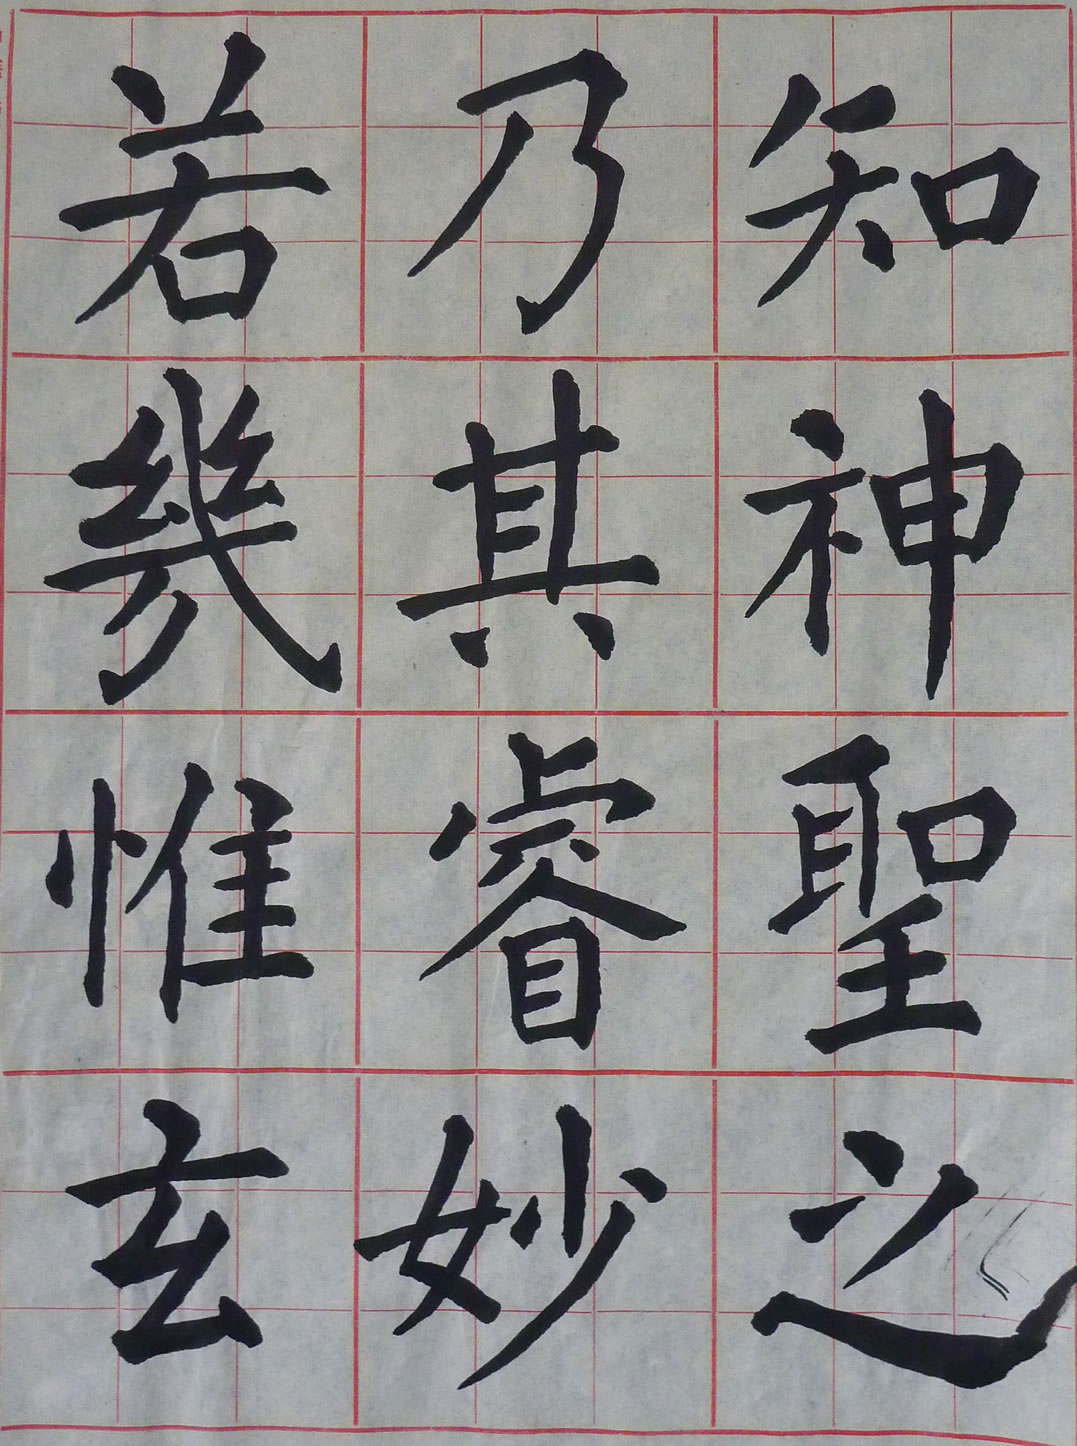 知神聖之
乃其睿妙
若幾惟玄